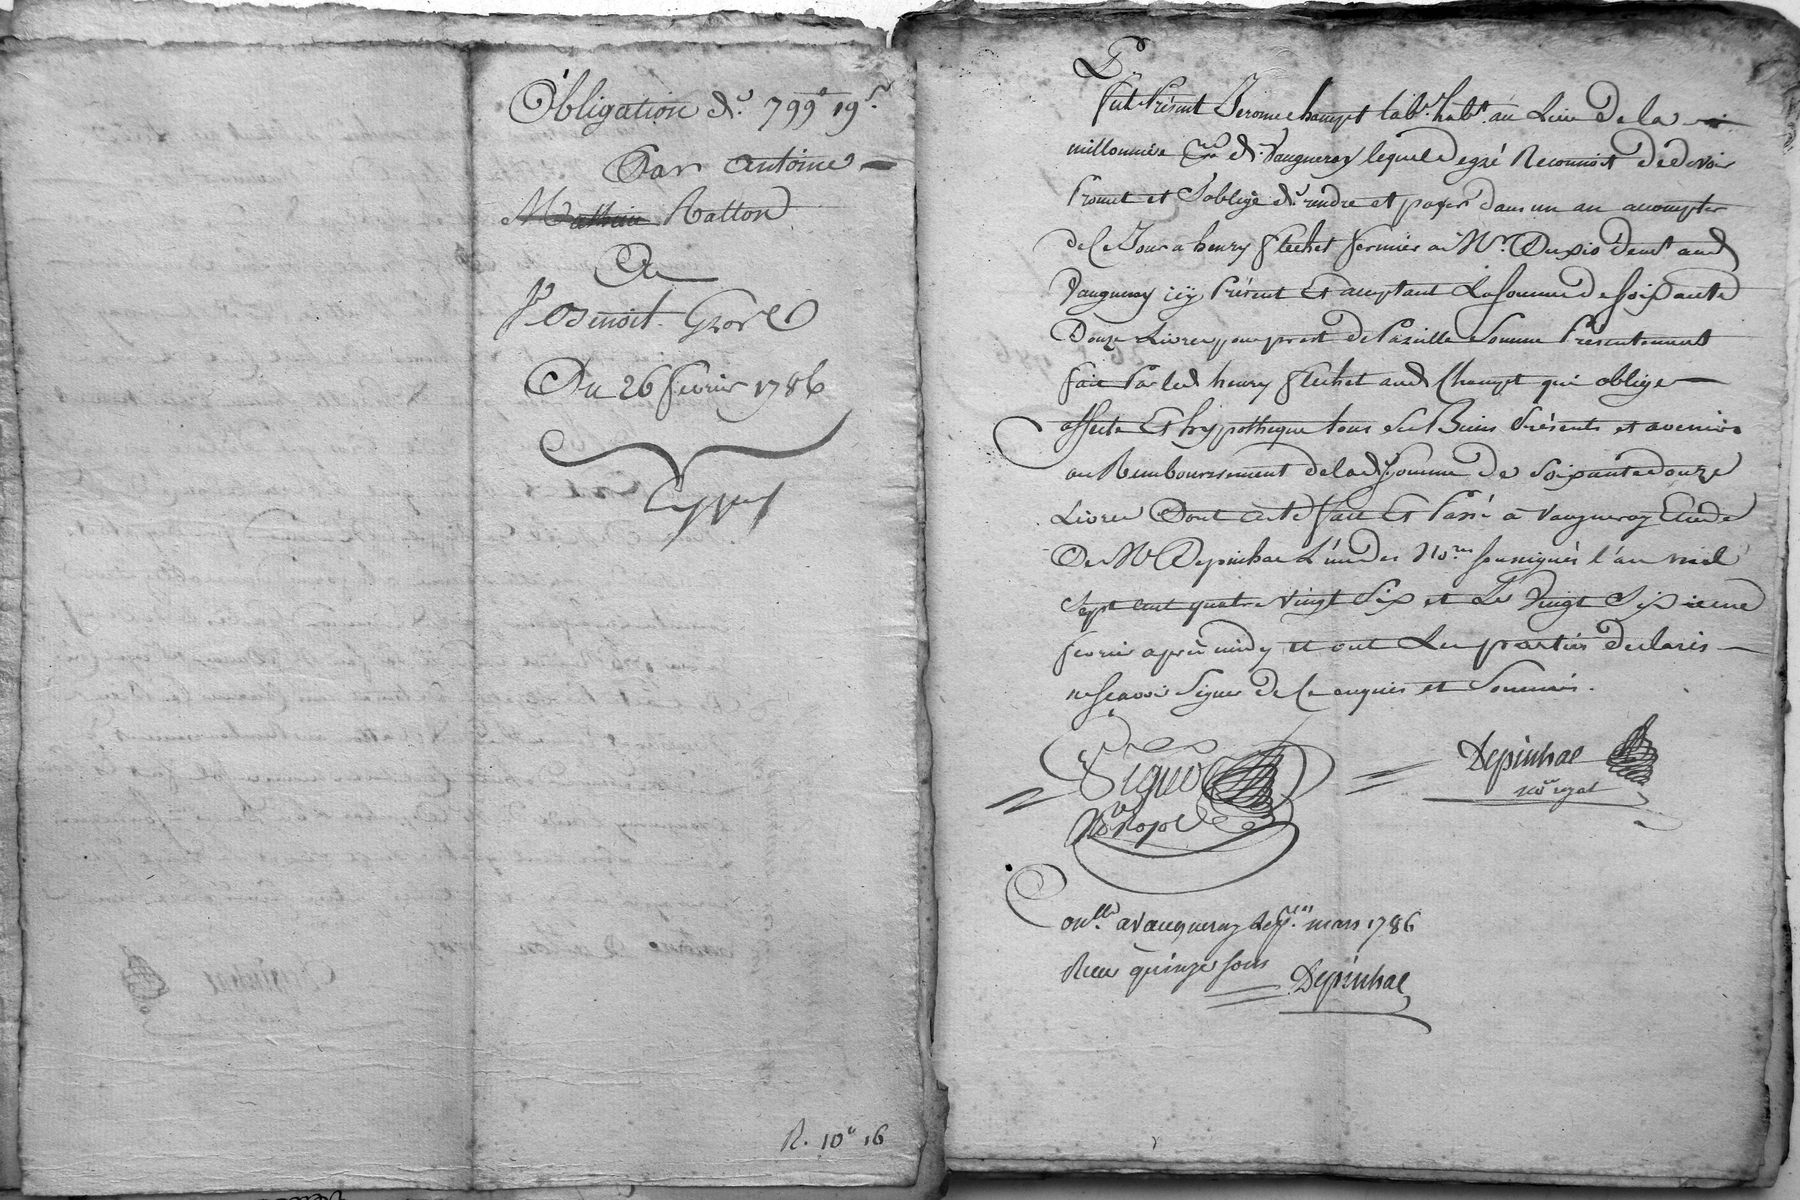 Obligation de 799# 19s.
Par Antoine
Mathieu Ratton
A
Benoit
Du 26 fevrier 1786
R. 10# 16
Fut Présent Jerome champt lab.r hab.t au Lieu de la
millonniere de Vaugneray lequel de gré Reconnoit de devoir
Promet et s'oblige de rendre et payer dans un an acompter
de Ce Jour a henry flechet fermier a Mr. Dupio demt. aud
Vaugneray icy Présent Et aceptant La somme de soixante
Douze Livres pour prest de Pareille somme Presentement
fait Par led henry flechet aud Champt qui oblige
affecte Et hyppotheque tous ses Biens Présents et avenirs
au Remboursement de lad. somme de soixante douze
Livres Dont acte fait Et Passé a Vaugneray Etude
De Me Depinhac L'un des Nores soussignés l'an mil
sept cent quatre vingt six et Le Vingt sixieme
fevrier apres midy et ont Les parties declarés
ne scavoir signer de Ce enquis et sommés.
Depinhac
nore royal
Nre Royal
Conllé a Vaugneray le pr. mars 1786
Recu quinze sous Depinhac